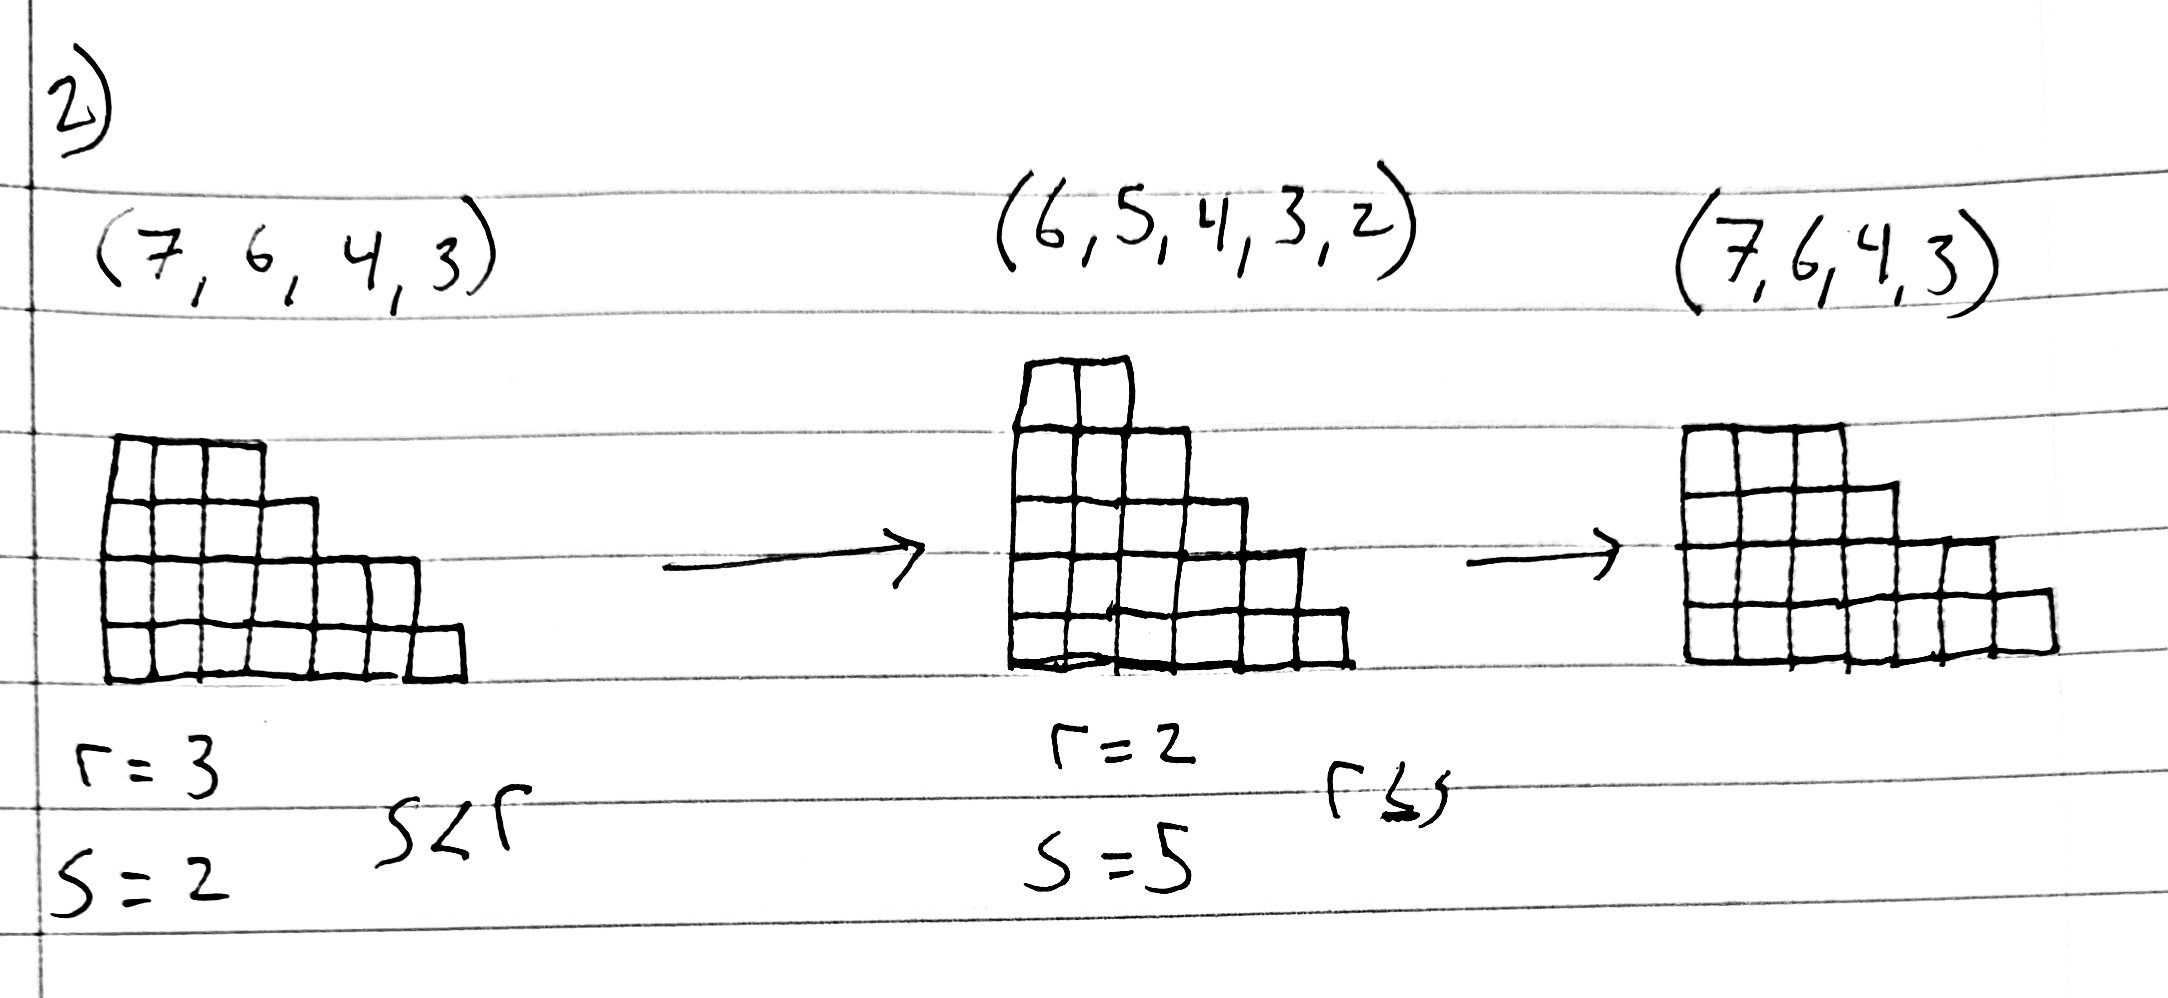 2)
(7, 6, 4, 3) (6, 5, 4, 3, 2) (7, 6, 4, 3)
r = 3 r = 2
s < r r ≤ s
s = 2 s = 5